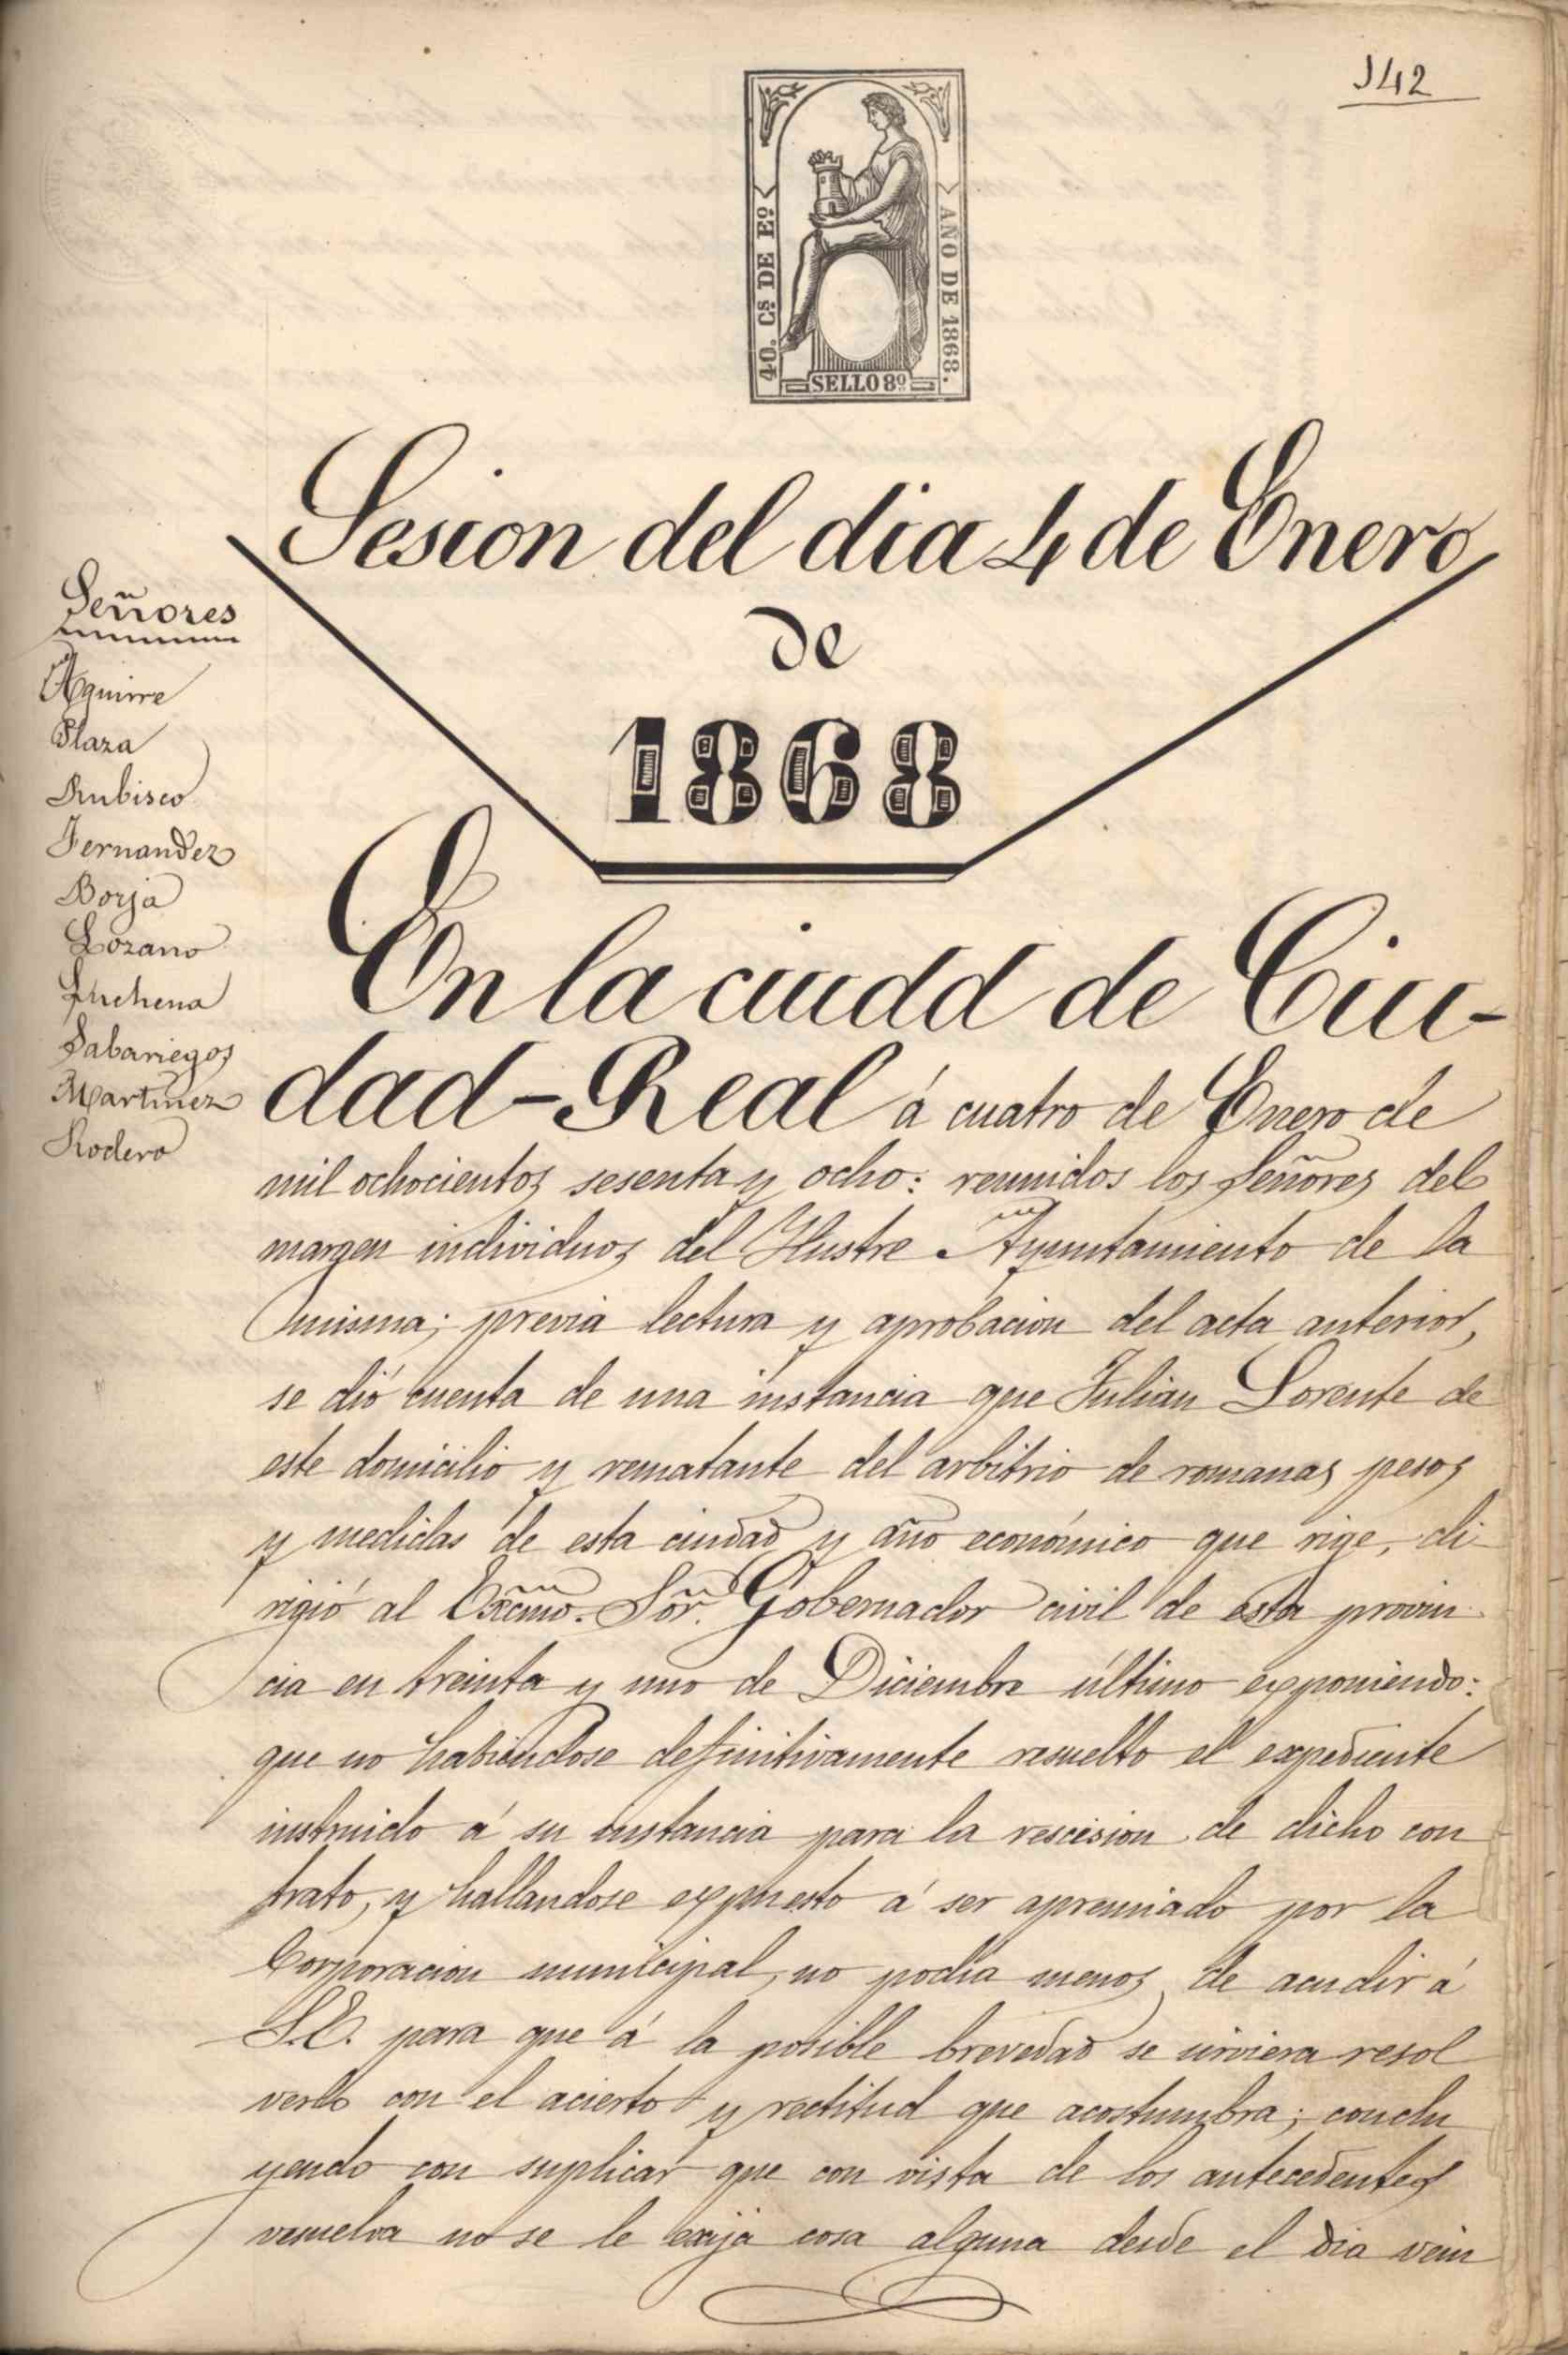 142
40. Cs DE Eo
AÑO DE 1868.
SELLO 8º
Sesion del dia 4 de Enero
de
1868
Señores
Aguirre
Plaza
Rubisco
Fernandez
Borja
Lozano
Luchena
Sabariegos
Martinez
Rodero
En la ciudd de Ciu-
dad-Real á cuatro de Enero de
mil ochocientos sesenta y ocho: reunidos los Señores del
margen individuos del Ilustre Ayuntamiento de la
misma; previa lectura y aprobacion del acta anterior,
se dió cuenta de una instancia que Julian Lorente de
este domicilio y rematante del arbitrio de romanas pesos
y medidas de esta ciudad y año económico que rige, di-
rigió al Excmo. Sor. Gobernador civil de esta provin-
cia en treinta y uno de Diciembre último exponiendo:
que no habiendose definitivamente resuelto el expediente
instruido á su instancia para la rescision de dicho con
trato, y hallandose expuesto á ser apremiado por la
Corporacion municipal, no podia menos de acudir á
S.E. para que á la posible brevedad se sirviera resol
verlo con el acierto y rectitud que acostumbra; conclu
yendo con suplicar que con vista de los antecedentes
resuelva no se le exija cosa alguna desde el dia vein